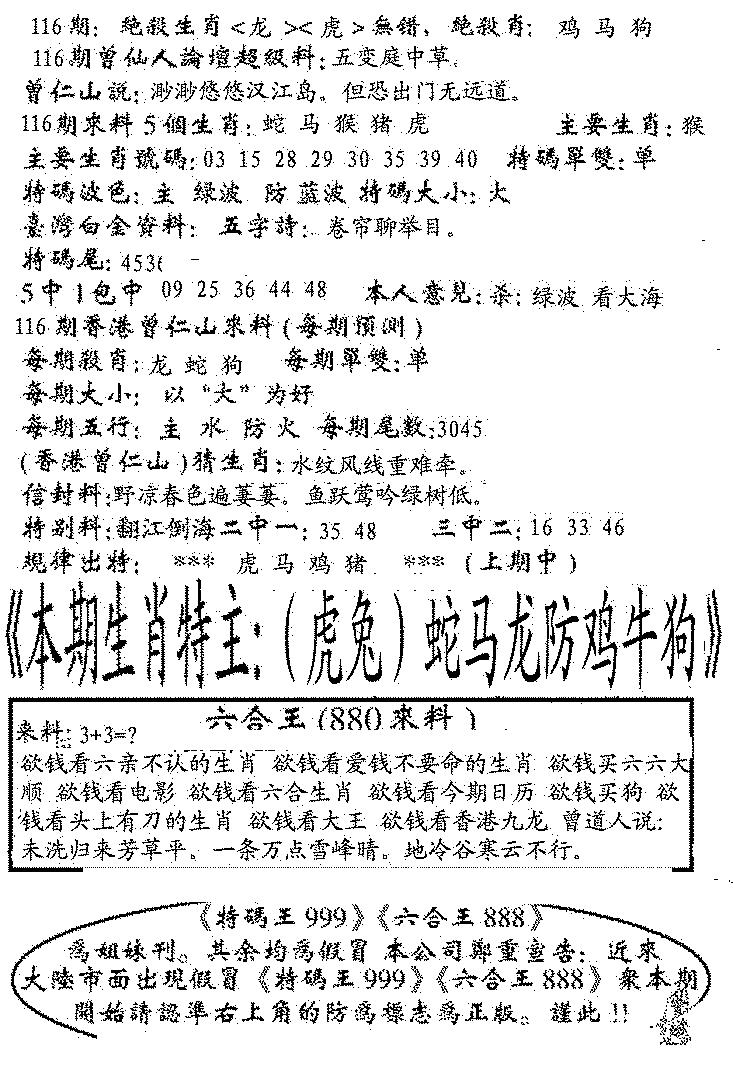 116期：绝殺生肖<龙><虎>無错，绝殺肖：鸡 马 狗
116期曾仙人論壇超級料：五变庭中草。
曾仁山說：渺渺悠悠汉江岛。但恐出门无远道。
116期來料5個生肖：蛇 马 猴 猪 虎 主要生肖：猴
主要生肖號碼：03 15 28 29 30 35 39 40 特碼單雙：单
特碼波色：主 绿波 防 蓝波 特碼大小：大
臺灣白金資料： 五字詩：卷帘聊举目。
特碼尾：453
5中1包中 09 25 36 44 48 本人意見：杀：绿波 看大海
116期香港曾仁山來料(每期預測)
每期殺肖：龙 蛇 狗 每期單雙：单
每期大小： 以“大”为好
每期五行： 主 水 防 火 每期尾数：3045
(香港曾仁山)猜生肖：水纹风线重难牵。
信封料：野凉春色遍萋萋。鱼跃莺吟绿树低。
特别料：翻江倒海二中一：35 48 三中二：16 33 46
規律出特： *** 虎 马 鸡 猪 *** (上期中)
《本期生肖特主：（虎兔）蛇马龙防鸡牛狗》
六合王(880來料)
来料：3+3=?
欲钱看六亲不认的生肖 欲钱看爱钱不要命的生肖 欲钱买六六大
顺 欲钱看电影 欲钱看六合生肖 欲钱看今期日历 欲钱买狗 欲
钱看头上有刀的生肖 欲钱看大王 欲钱看香港九龙 曾道人说：
未洗归来芳草平。一条万点雪峰晴。地冷谷寒云不行。
《特碼王999》《六合王888》
爲姐妹刊。其余均爲假冒 本公司鄭重宣告：近來
大陸市面出現假冒《特碼王999》《六合王888》衆本期
開始請認準右上角的防爲標志爲正版。謹此!!